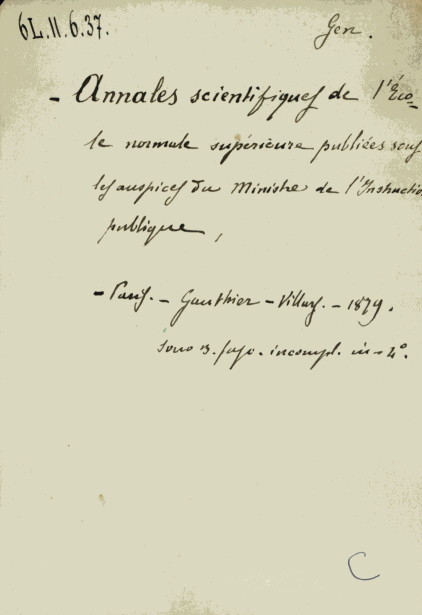 6L.II.6.37.
Gen.
- Annales scientifiques de l'Éco=
le normale supérieure publiées sous
les auspices du Ministre de l'Instruction
publique,
- Paris. - Gauthier - Villars. - 1879.
sono 3. fasc. incompl. in - 4°.
C